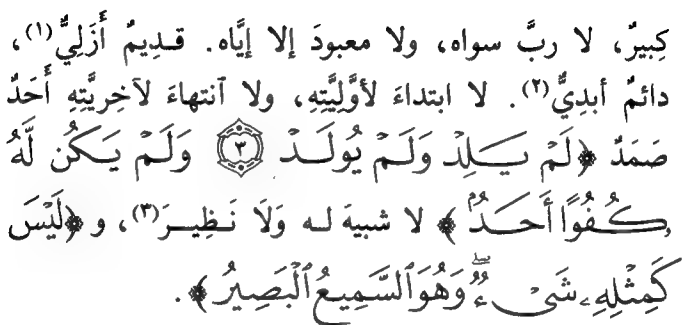 كبيرٌ، لا ربَّ سواه، ولا معبودَ إلا إيَّاه. قديمٌ أَزَليٌّ(١)،
دائمٌ أبدِيٌّ(٢). لا ابتداءَ لأوَّلِيَّتِهِ، ولا ٱنتهاءَ لآخِرِيَّتِهِ أَحَدٌ
صَمَدٌ ﴿لَمْ يَلِدْ وَلَمْ يُولَدْ ٣ وَلَمْ يَكُن لَّهُۥ
كُفُوًا أَحَدٌۢ﴾ لا شبيهَ لـه وَلَا نَظِيـرَ(٣)، و﴿لَيْسَ
كَمِثْلِهِۦ شَىْءٌ ۖ وَهُوَ ٱلسَّمِيعُ ٱلْبَصِيرُ﴾.